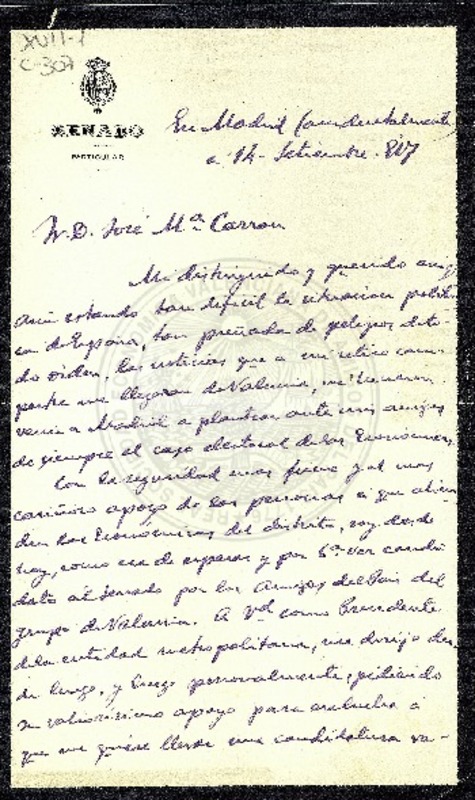 XVII-1
C-307
SENADO
PARTICULAR
En Madrid (accidentalmente)
a 14 Setiembre 917
D. José Mª Carrau
Mi distinguido y querido amigo
estando tan dificil la situacion politi-
ca de España, tan preñada de peligros de to-
do orden, las noticias que a mi retiro cam-
pestre me llegaron de Valencia, me hicieron
venir a Madrid a plantear ante mis amigos
de siempre el caso electoral de las Económicas
Con la seguridad mas firme y el mas
cariñoso apoyo de las personas a que atien-
den las Economicas del distrito, soy desde
hoy, como era de esperar y por 6ª vez candi-
dato al Senado por los Amigos del Pais del
grupo de Valencia. A Vd como Presidente
de la entidad metropolitana, me dirijo des-
de luego, y luego personalmente, pidiendo
su valiosisimo apoyo para
que me quiere llevar una candidatura va-